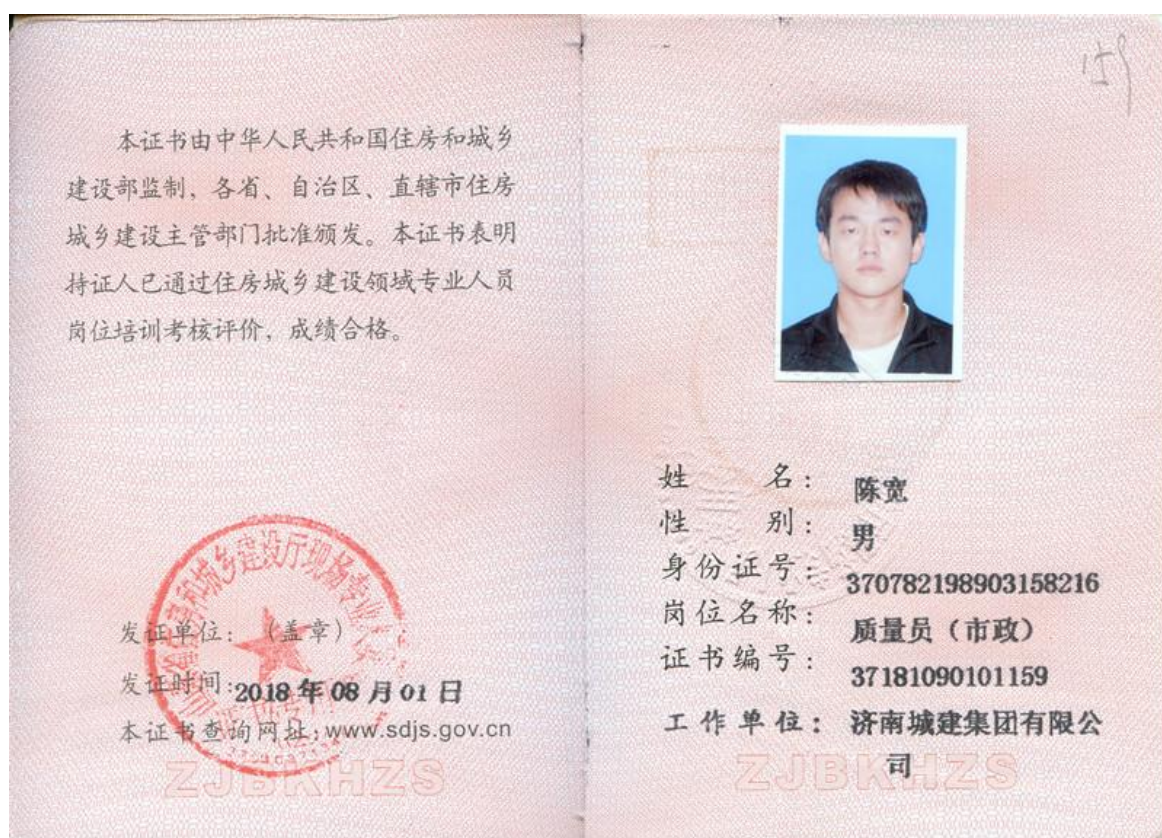 本证书由中华人民共和国住房和城乡
建设部监制，各省、自治区、直辖市住房
城乡建设主管部门批准颁发。本证书表明
持证人已通过住房城乡建设领域专业人员
岗位培训考核评价，成绩合格。
发证单位：（盖章）
发证时间：2018 年 08 月 01 日
本证书查询网址：www.sdjs.gov.cn
ZJBKHZS
159
姓 名： 陈宽
性 别： 男
身份证号： 370782198903158216
岗位名称： 质量员（市政）
证书编号： 37181090101159
工作单位： 济南城建集团有限公
司
ZJBKHZS